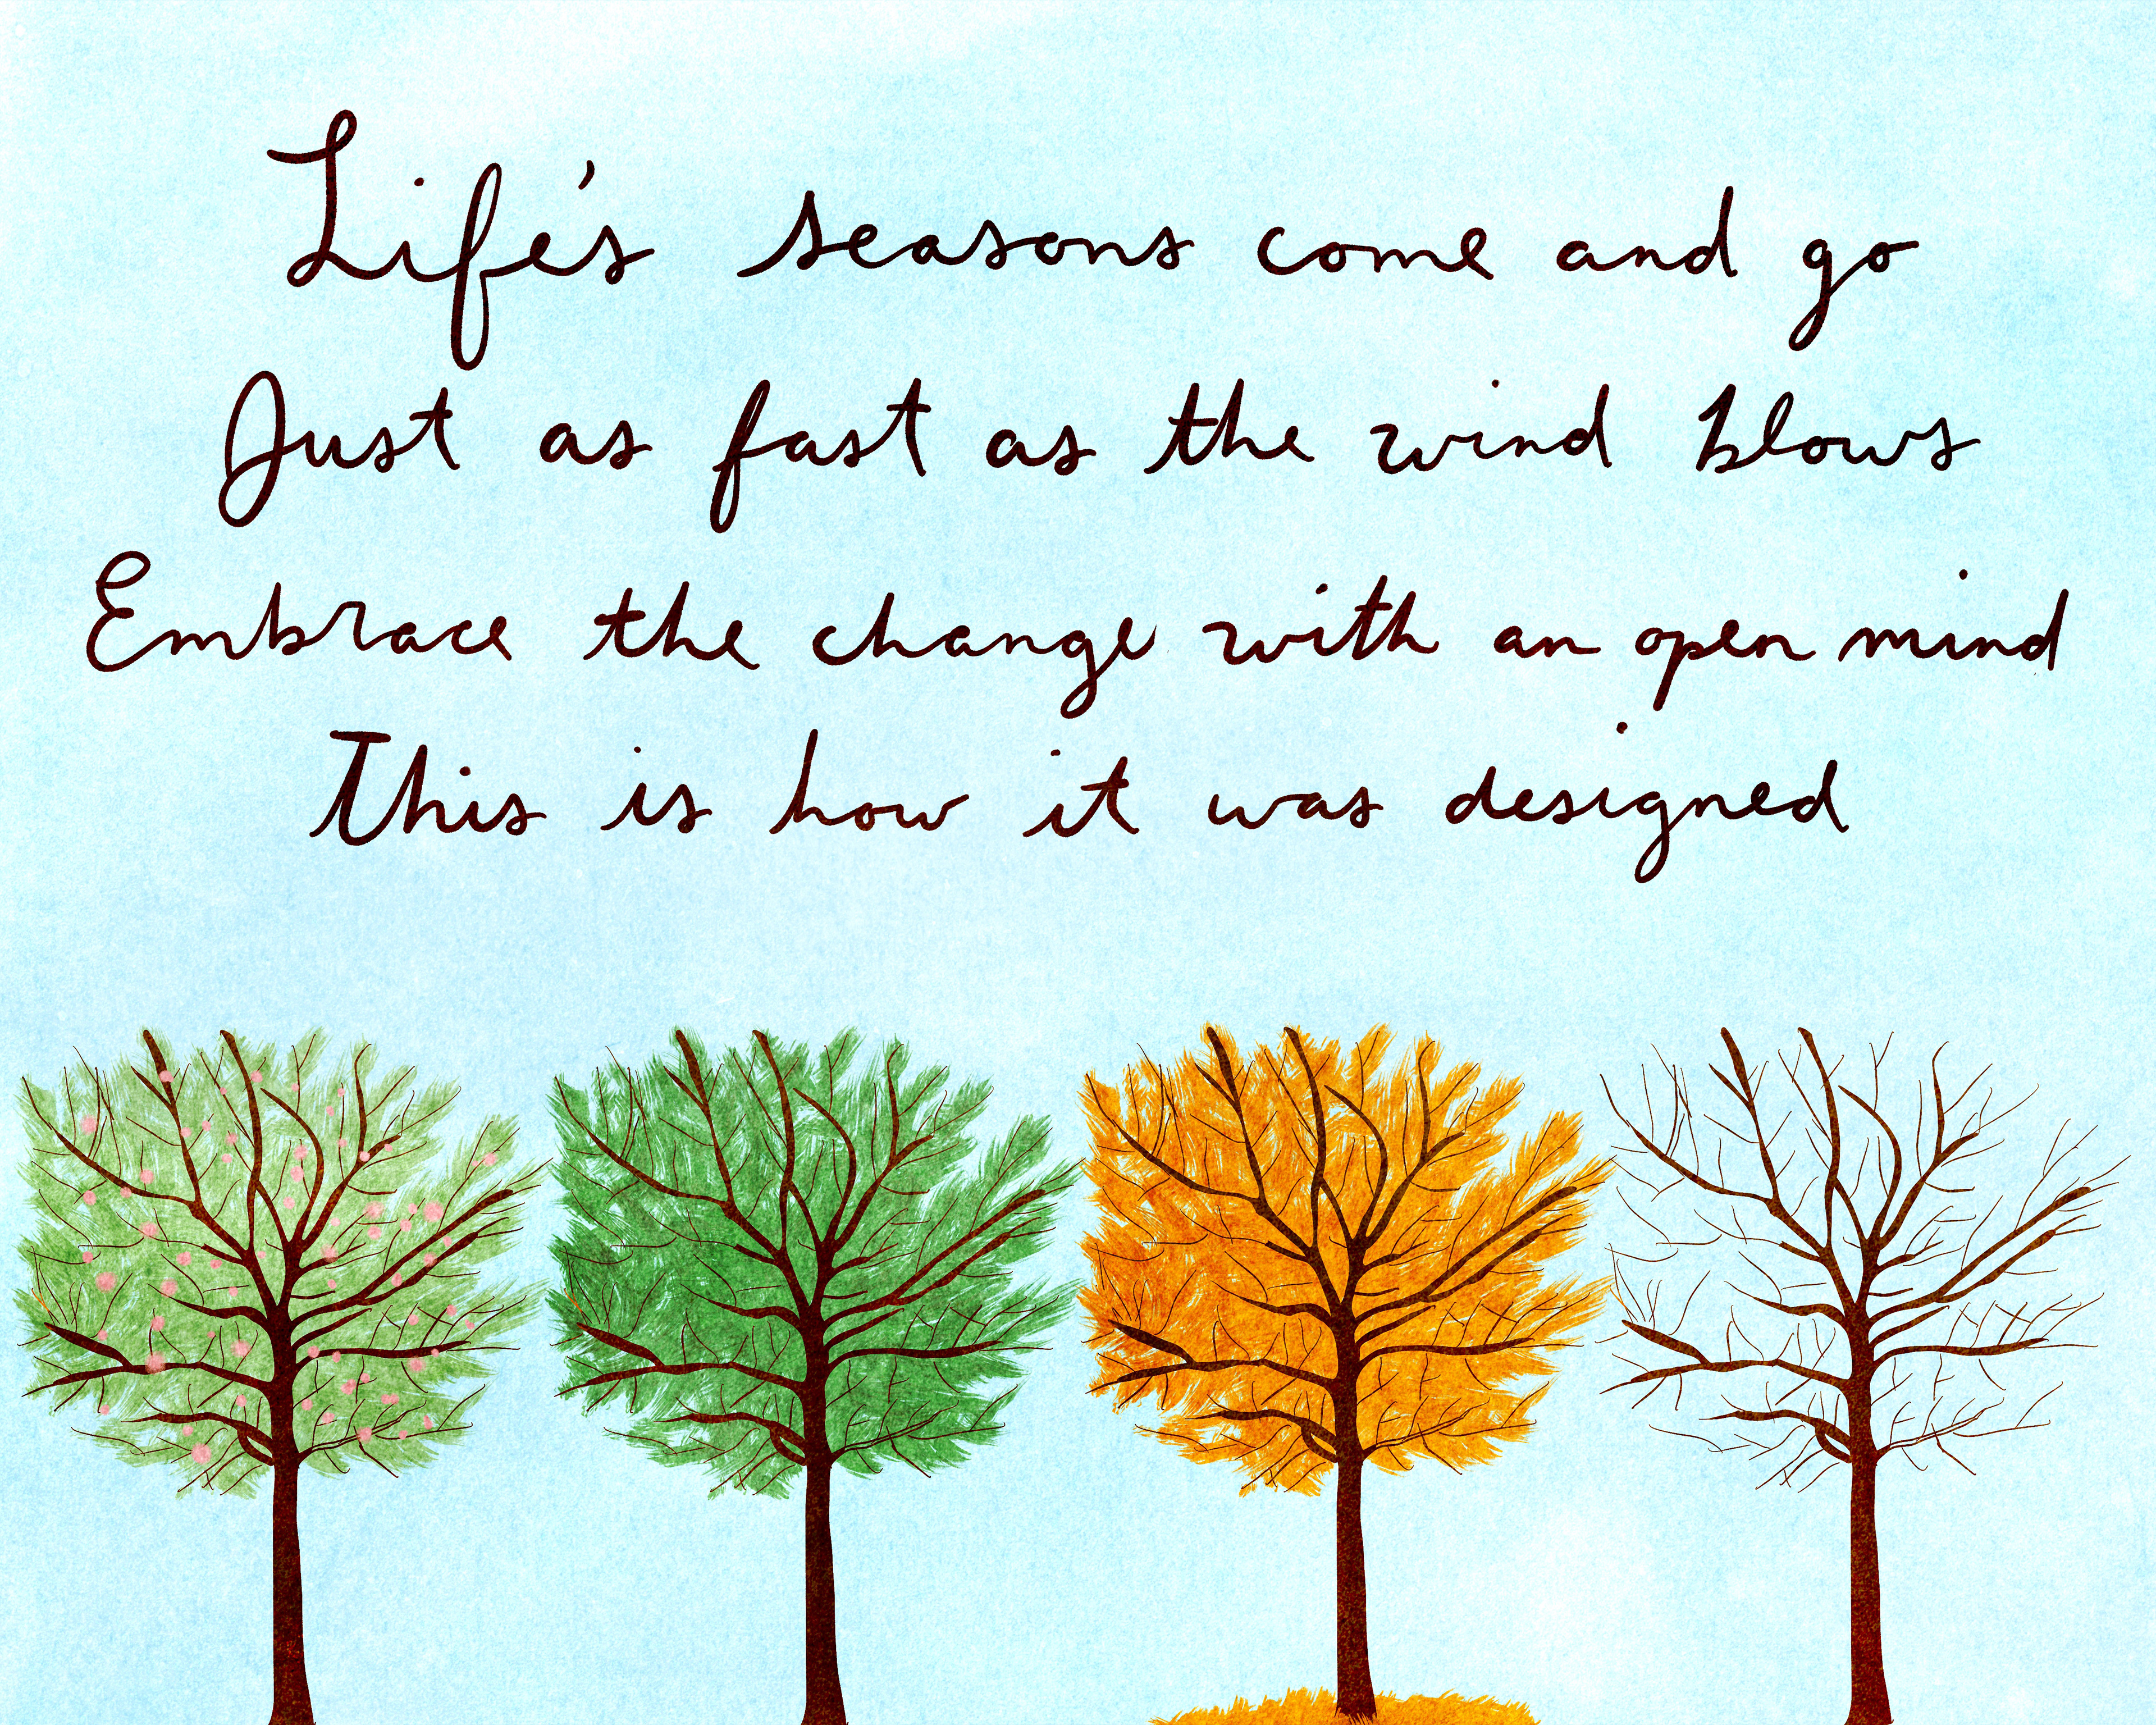 Life's seasons come and go
Just as fast as the wind blows
Embrace the change with an open mind
This is how it was designed